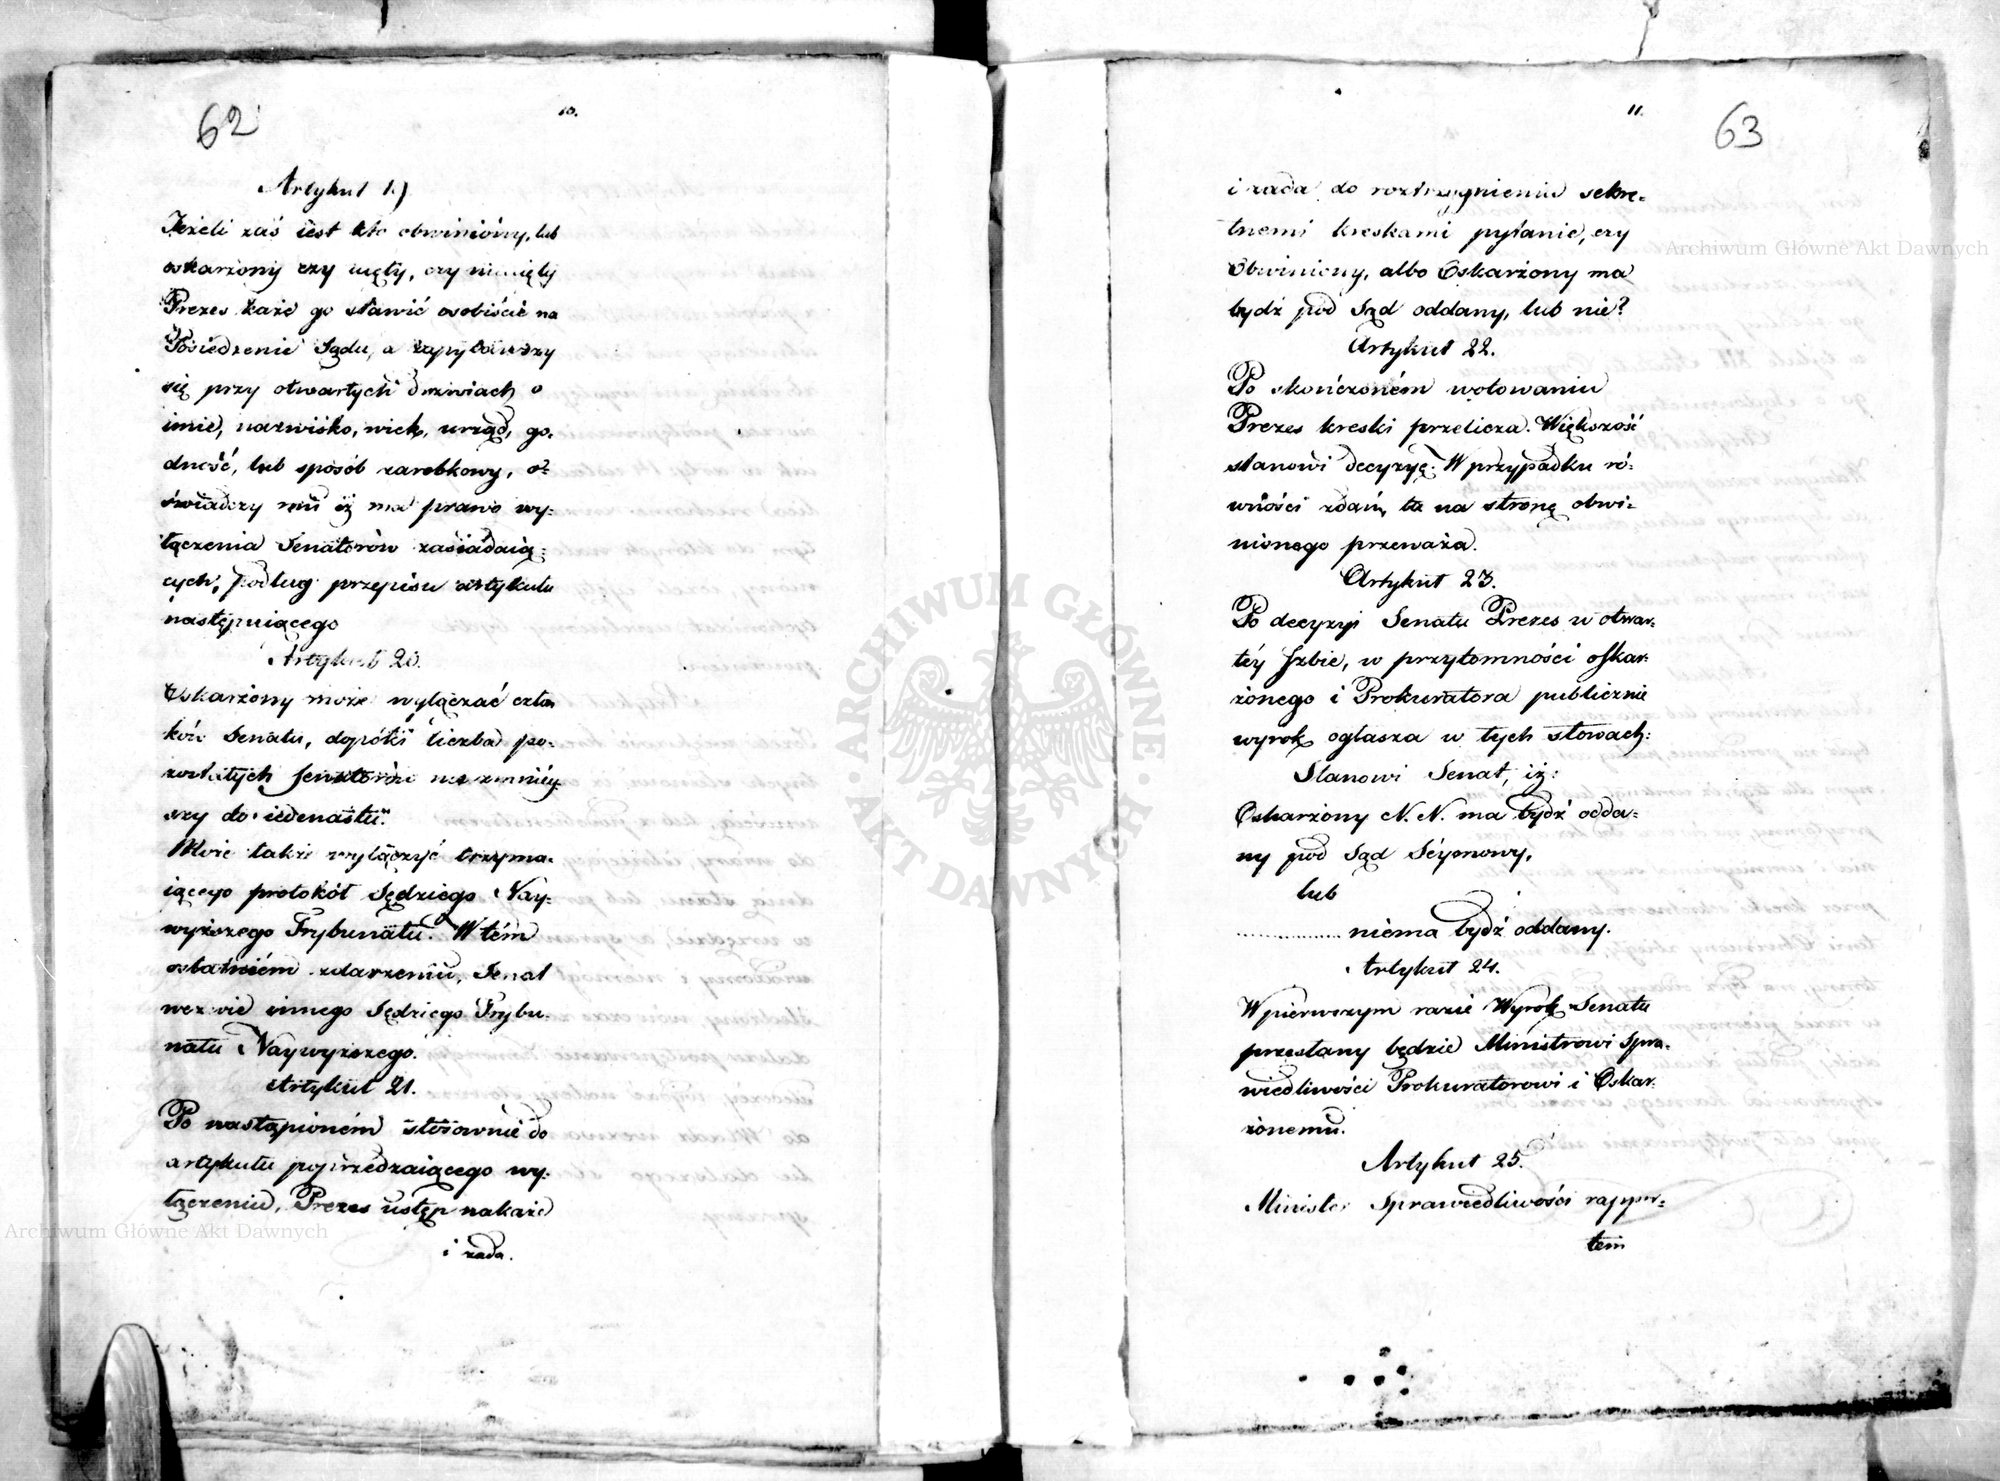 62
10.
Artykuł 19
Jeżeli zaś iest kto obwiniony, lub
oskarżony czy uięty, czy nieuięty
Prezes każe go stawić osobiście na
Posiedzenie Sądu, a zapytawszy
się przy otwartych drzwiach o
imie, nazwisko, wiek, urząd, go-
dność, lub sposób zarobkowy, o-
świadczy mu iż ma prawo wy-
łączenia Senatorów zasiadaią-
cych, podług przepisu artykułu
następuiącego
Artykuł 20.
Oskarżony może wyłączać człon-
ków Senatu, dopóki liczba po-
zostałych Senatorów nie zmniéy-
szy do iedenastu.
Może także wyłączyć trzyma-
iącego protokół Sędziego Nay-
wyższego Trybunału. W tém
ostatniém zdarzeniu, Senat
wezwie innego Sędziego Trybu-
nału Naywyższego.
Artykuł 21.
Po nastąpioném stosownie do
artykułu poprzedzaiącego wy-
łączeniu, Prezes ustęp nakaże
i zada.
11.
63
i zada do roztrzygnienia sekre-
tnemi kreskami pytanie, czy
Obwiniony, albo Oskarżony ma
bydź pod Sąd oddany, lub nie?
Artykuł 22.
Po skończoném wotowaniu
Prezes kreski przelicza. Większość
stanowi decyzyę. W przypadku ró-
wności zdań, ta na stronę obwi-
nionego przeważa.
Artykuł 23.
Po decyzyi Senatu Prezes w otwar-
téy Izbie, w przytomności oskar-
żonego i Prokuratora publicznie
wyrok ogłasza w tych słowach:
Stanowi Senat, iż:
Oskarżony N. N. ma bydź odda-
ny pod Sąd Séymowy,
lub
............... niema bydź oddany.
Artykuł 24.
W pierwszym razie Wyrok Senatu
przesłany będzie Ministrowi Spra-
wiedliwości Prokuratorowi i Oskar-
żonemu.
Artykuł 25.
Minister Sprawiedliwości rappor-
tem
ARCHIWUM GŁÓWNE · AKT DAWNYCH ·
Archiwum Główne Akt Dawnych
Archiwum Główne Akt Dawnych